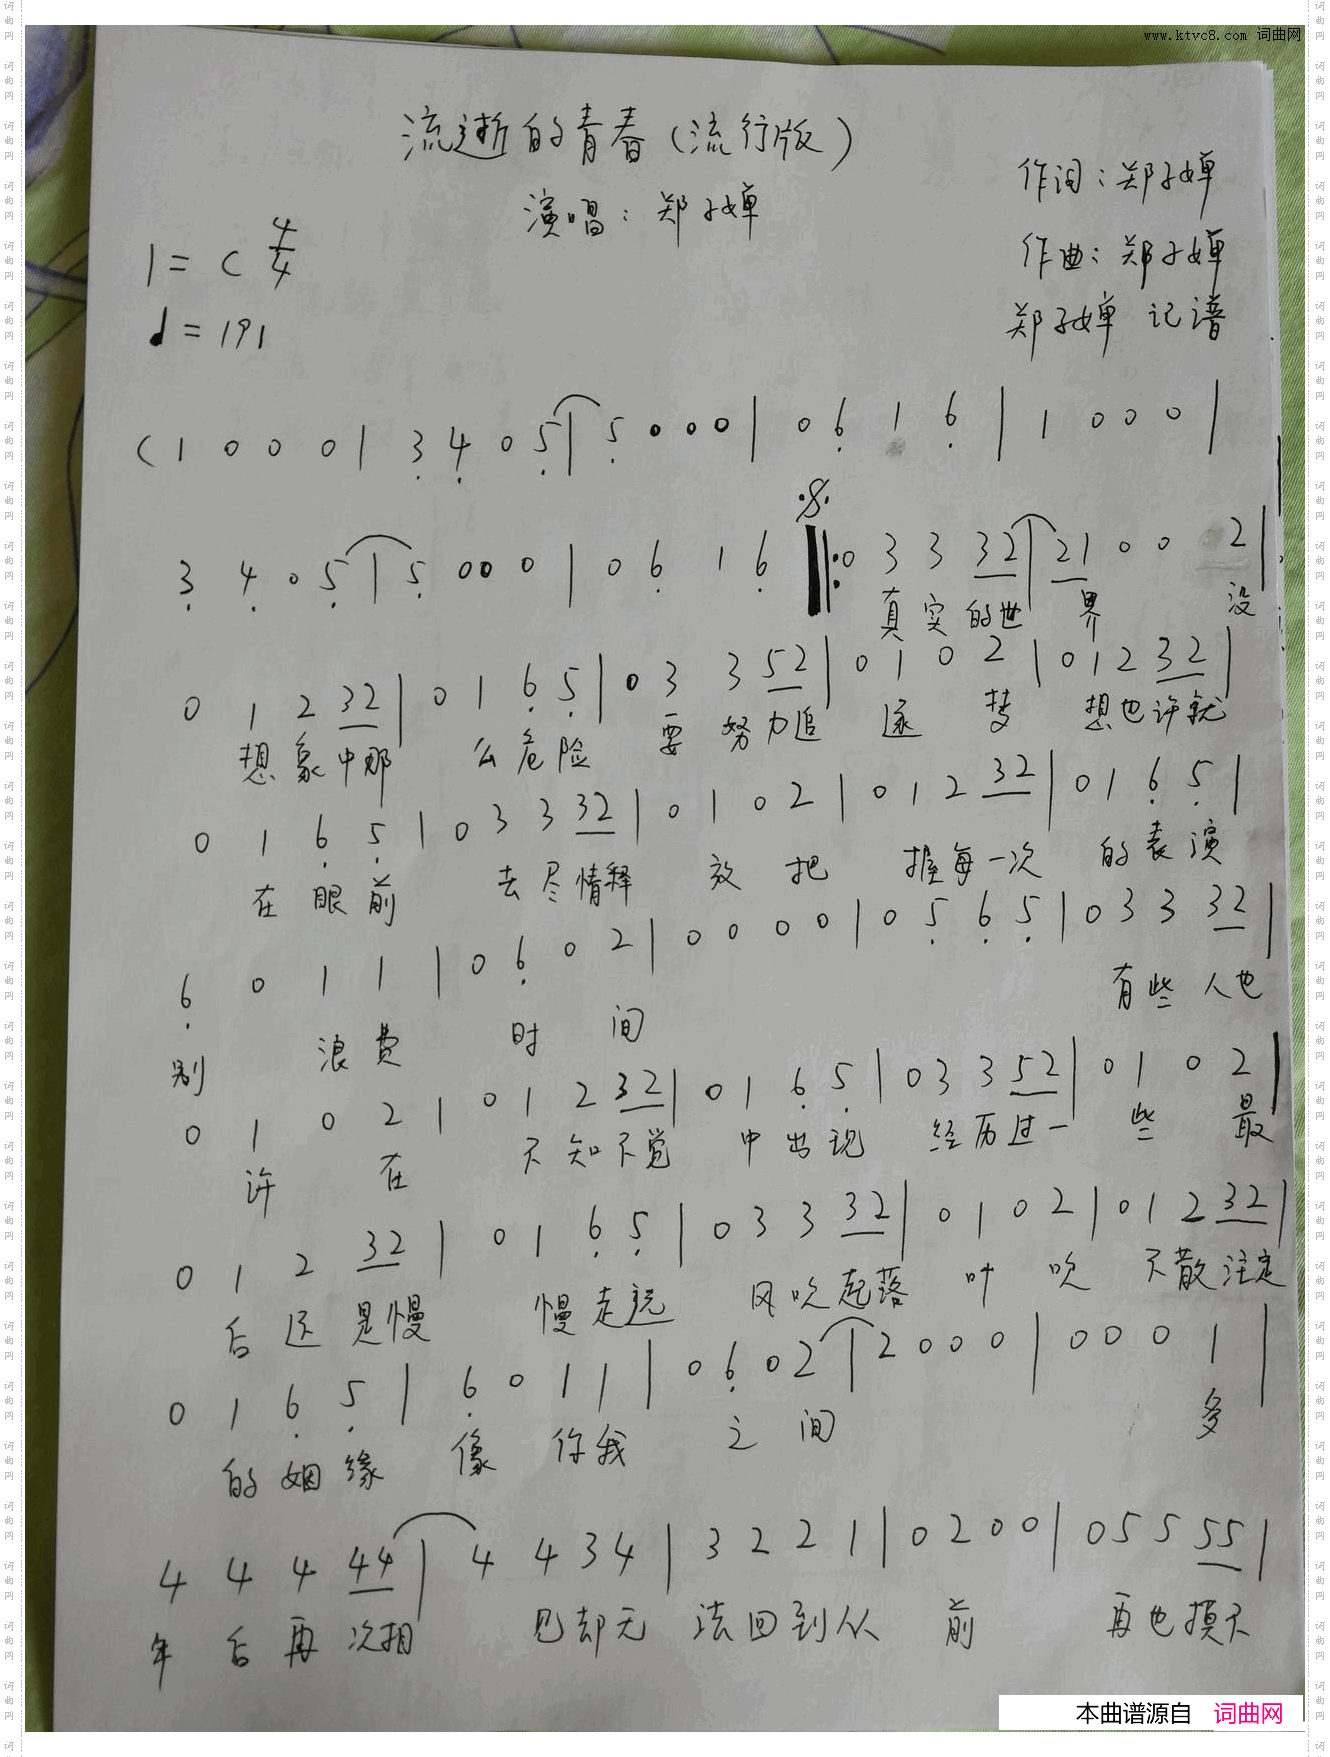 www.ktvc8.com 词曲网
流逝的青春(流行版)
作词:郑子婵
演唱:郑子婵
1=C 4/4
作曲:郑子婵
♩=191
郑子婵 记谱
(1 0 0 0 | 3 4 0 5 | 5 0 0 0 | 0 6 1 6 | 1 0 0 0 |
3 4 0 5 | 5 0 0 0 | 0 6 1 6 ‖: 0 3 3 32 | 21 0 0 2 |
真实的世 界 没
0 1 2 32 | 0 1 6 5 | 0 3 3 52 | 0 1 0 2 | 0 1 2 32 |
想象中那 么危险 要 努力追 逐 梦 想也许就
0 1 6 5 | 0 3 3 32 | 0 1 0 2 | 0 1 2 32 | 0 1 6 5 |
在眼前 去尽情释 放 把 握每一次 的表演
6 0 1 1 | 0 6 0 2 | 0 0 0 0 | 0 5 6 5 | 0 3 3 32 |
别 浪费 时 间 有些人也
0 1 0 2 | 0 1 2 32 | 0 1 6 5 | 0 3 3 52 | 0 1 0 2 |
许 在 不知不觉 中出现 经历过一 些 最
0 1 2 32 | 0 1 6 5 | 0 3 3 32 | 0 1 0 2 | 0 1 2 32 |
后还是慢 慢走远 风吹起落 叶 吹 不散注定
0 1 6 5 | 6 0 1 1 | 0 6 0 2 | 2 0 0 0 | 0 0 0 1 |
的姻缘 像 你我 之 间 多
4 4 4 44 | 4 4 3 4 | 3 2 2 1 | 0 2 0 0 | 0 5 5 55 |
年后再次相 见却无 法回到从 前 再也摸不
本曲谱源自 词曲网